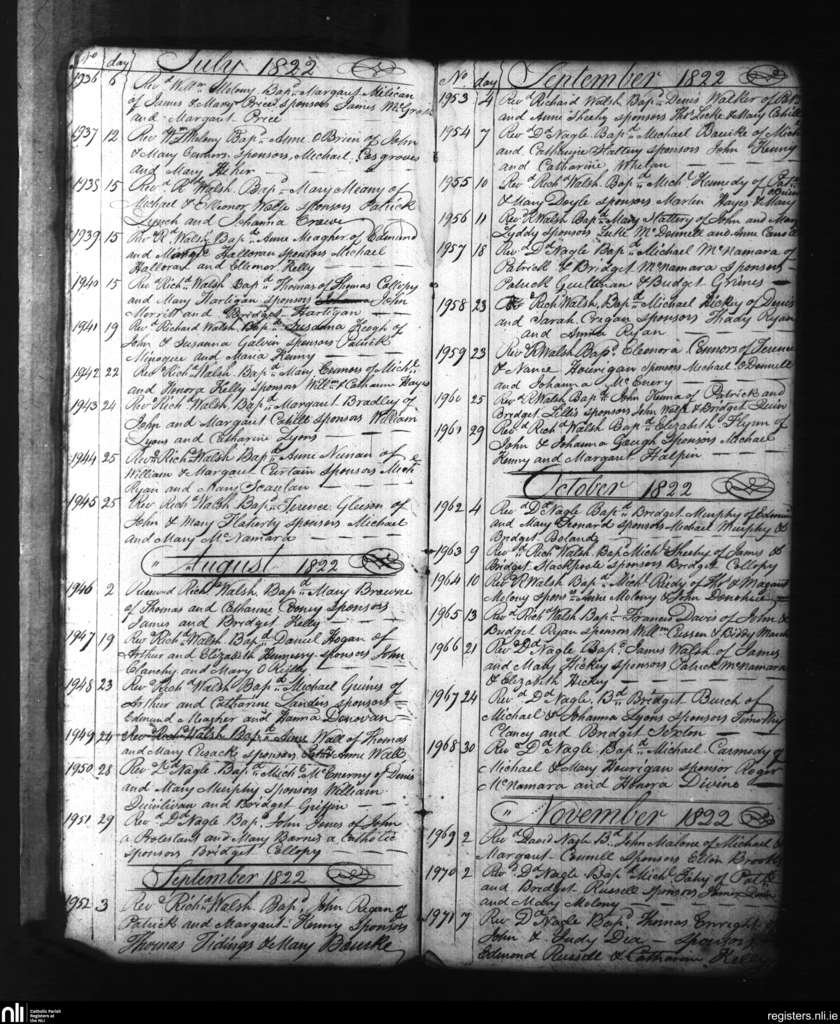 No day July 1822
1936 6 Revd Willm Molony Bapd Margaret Milican
of James & Mary Price sponsors James McGrath
and Margaret Price
1937 12 Rev Wm Molony Bapd Anne OBrien of John
& Mary sponsors Michael Cosgrove
and Mary Meher
1938 15 Revd Rd Walsh Bapd Mary Meany of
Michael & Eleonor Wolfe sponsors Patrick
Lynch and Johanna Crowe
1939 15 Rev Rd Walsh Bapd Anne Meagher of Edmund
and Halloran sponsors Michael
Halloran and Elleonor Kelly
1940 15 Rev Richd Walsh Bapd Thomas of Thomas Collopy
and Mary Hartigan sponsors John
Morritt and Bridget Hartigan
1941 19 Rev Richard Walsh Bapd Susanna Keogh of
John & Susanna Galvin sponsors Patrick
Minogue and Maria Kenny
1942 22 Revd Richd Walsh Bapd Mary Connors of Michl
and Honora Kelly sponsors Willm & Catharine Hayes
1943 24 Rev Richd Walsh Bapd Margaret Bradley of
John and Margaret Cahill sponsors William
Lyons and Catharine Lyons
1944 25 Revd Richd Walsh Bapd Anne Nunan of
William & Margaret Curtain sponsors Michl
Ryan and Mary Scanlan
1945 25 Rev Richd Walsh Bapd Terence Gleeson of
John & Mary Flaherty sponsors Michael
and Mary McNamara
" August 1822
1946 2 Reverend Richd Walsh Bapd Mary Browne
of Thomas and Catharine Cooney Sponsors
James and Bridget Kelly
1947 19 Revd Richd Walsh Bapd Daniel Hogan of
Arthur and Elizabeth Hennessy sponsors John
Clanchy and Mary OReilly
1948 23 Revd Richd Walsh Bapd Michael Guines of
Arthur and Catharine Landers sponsors
Edmund Meagher and Hanna Donovan
1949 24 Rev Richd Walsh Bapd Anne Wall of Thomas
and Mary Cusack sponsors John Anne Wall
1950 28 Rev Dd Nagle Bapd Michl McEnerny of Denis
and Mary Murphy Sponsors William
Quinlivan and Bridget Griffin
1951 29 Rev Dd Nagle Bapd John Jones of John
a Protestant and Mary Barnes a Catholic
Sponsors Bridget Collopy
September 1822
1952 3 Revd Richd Walsh Bapd John Regan of
Patrick and Margaret Kenny Sponsors
Thomas Tidings & Mary Bourke
No day September 1822
1953 4 Revd Richard Walsh Bapd Denis Walker of
and Anne Sheehy sponsors Thos Locke & Mary Cahill
1954 7 Rev Dd Nagle Bapd Michael Bourke of Mich
and Catharine Hattery sponsors John Kenny
and Catharine Whelan
1955 10 Revd Richd Walsh Bapd Michl Kennedy of Patk
& Mary Doyle sponsors Martin Hayes & Mary
1956 11 Rev R Walsh Bapd Mary Hattery of John and Mary
Lyddy sponsors Luke McDonnell and Anne
1957 18 Revd Dd Nagle Bapd Michael McNamara of
Patrick & Bridget McNamara Sponsors
Patrick & Bridget Grimes
1958 23 Richd Walsh Bapd Michael Hickey of Denis
and Sarah Cregan sponsors Thady Ryan
and Anna Ryan
1959 23 Revd R Walsh Bapd Eleonora Connors of Terence
& Nance Hourigan sponsors Michael ODonnell
and Johanna McEnery
1960 25 Rev R Walsh Bapd John Kenna of Patrick and
Bridget Lillis sponsors John Wolfe & Bridget Quin
1961 29 Revd Richd Walsh Bapd Elizabeth Flynn of
John & Johanna Gough Sponsors Michael
Kenny and Margaret Halpin
October 1822
1962 4 Rev Dd Nagle Bapd Bridget Murphy of
and Mary Leonard sponsors Michael Murphy &
Bridget Boland
1963 9 Revd Richd Walsh Bapd Michl Sheehy of James &
Bridget Stackpoole sponsors Bridget Collopy
1964 10 Revd R Walsh Bapd Michl Reidy of Thos & Margaret
Molony sponsors Anne Molony & John Donohue
1965 13 Revd Richd Walsh Bapd Francis Davis of John &
Bridget Ryan sponsors Willm Cussen & Biddy
1966 21 Rev Dd Nagle Bapd James Walsh of James
and Mary Hickey sponsors Patrick McNamara
& Elizabeth Hickey
1967 24 Revd Dd Nagle Bd Bridget Burch of
Michael & Johanna Lyons Sponsors Timothy
Clancy and Bridget Sexton
1968 30 Revd Dd Nagle Bapd Michael Carmody of
Michael & Mary Hourigan sponsor Roger
McNamara and Honora Divine
" November 1822
1969 2 Revd David Nagle Bd John Malone of Michael &
Margaret Connell Sponsors Ellen Brook
1970 2 Revd Dd Nagle Bapd Michl Fahy of Patk
and Bridget Russell Sponsors James
and Mary Molony
1971 7 Rev Dd Nagle Bapd Thomas Enright of
John & Judy Dea Sponsors
Edmond Russell & Catharine Kelly
nli Catholic Parish
Registers at
the NLI
registers.nli.ie